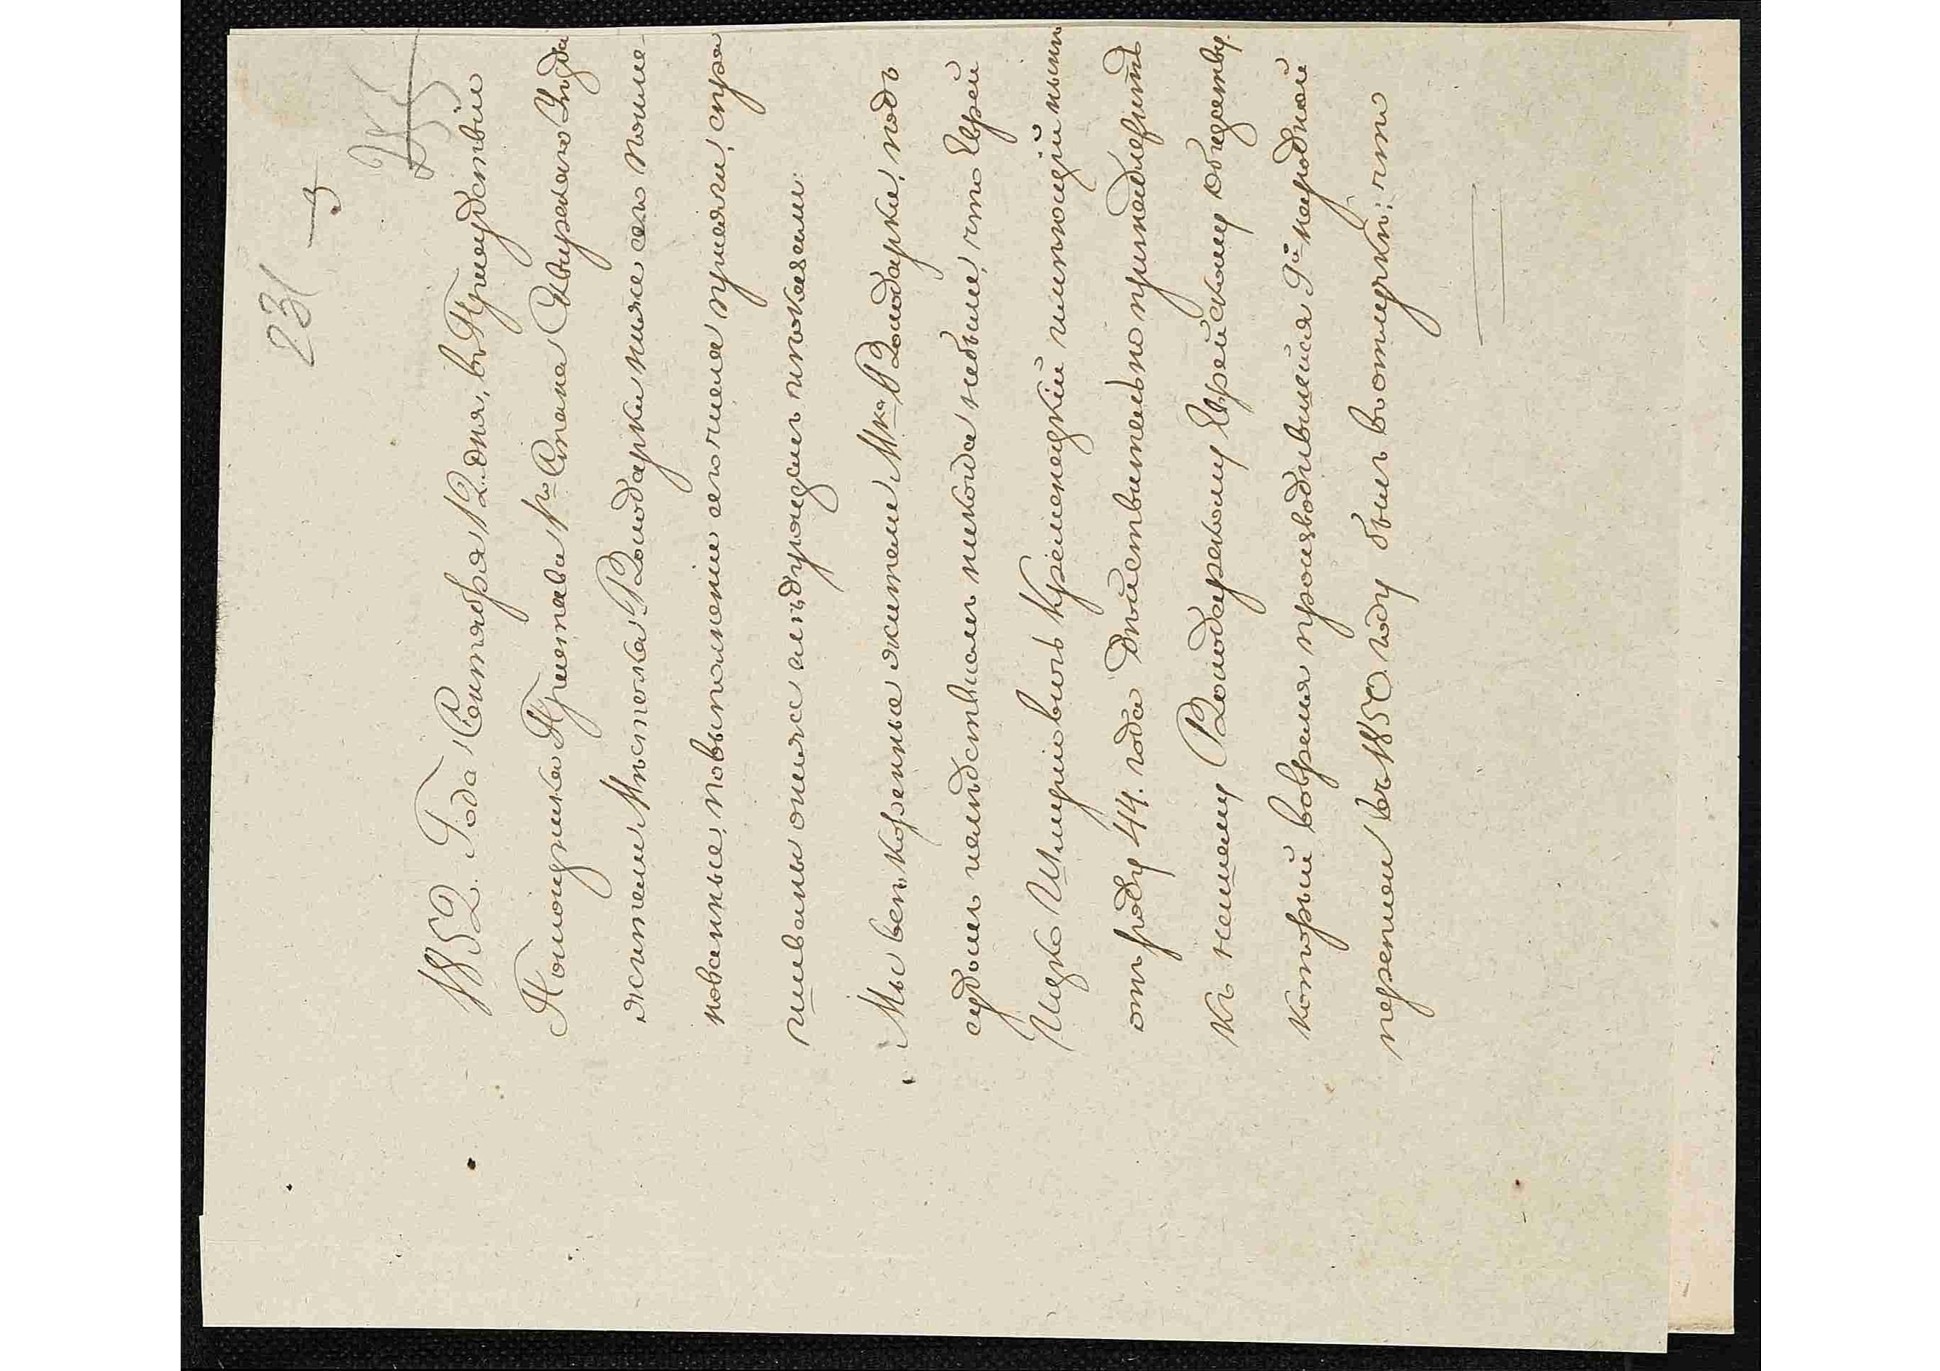 231
3
255
1852. Года Сентября 12. дня, въ Присудствіи
Помощника Пристава 1го Стана Сквирскаго Уѣзда
жители Мѣстечка Володарки ниже сего поиме-
нованные, по выполненіи сего числа присяги, спра
шиваны они и показали:
Мы всѣ, коренные жители Мка Володарки, подъ
судомъ и слѣдствіемъ никогда небыли, что Еврей
Ицко Шмулиовичъ Кременецкій имѣющій нынѣ
отъ роду 44. года дѣйствительно принадлежитъ
Къ нашему Володарскому Еврейскому Обществу.
который вовремя производившейся 9й народной
переписи въ 1850 году былъ въ отлучки; что